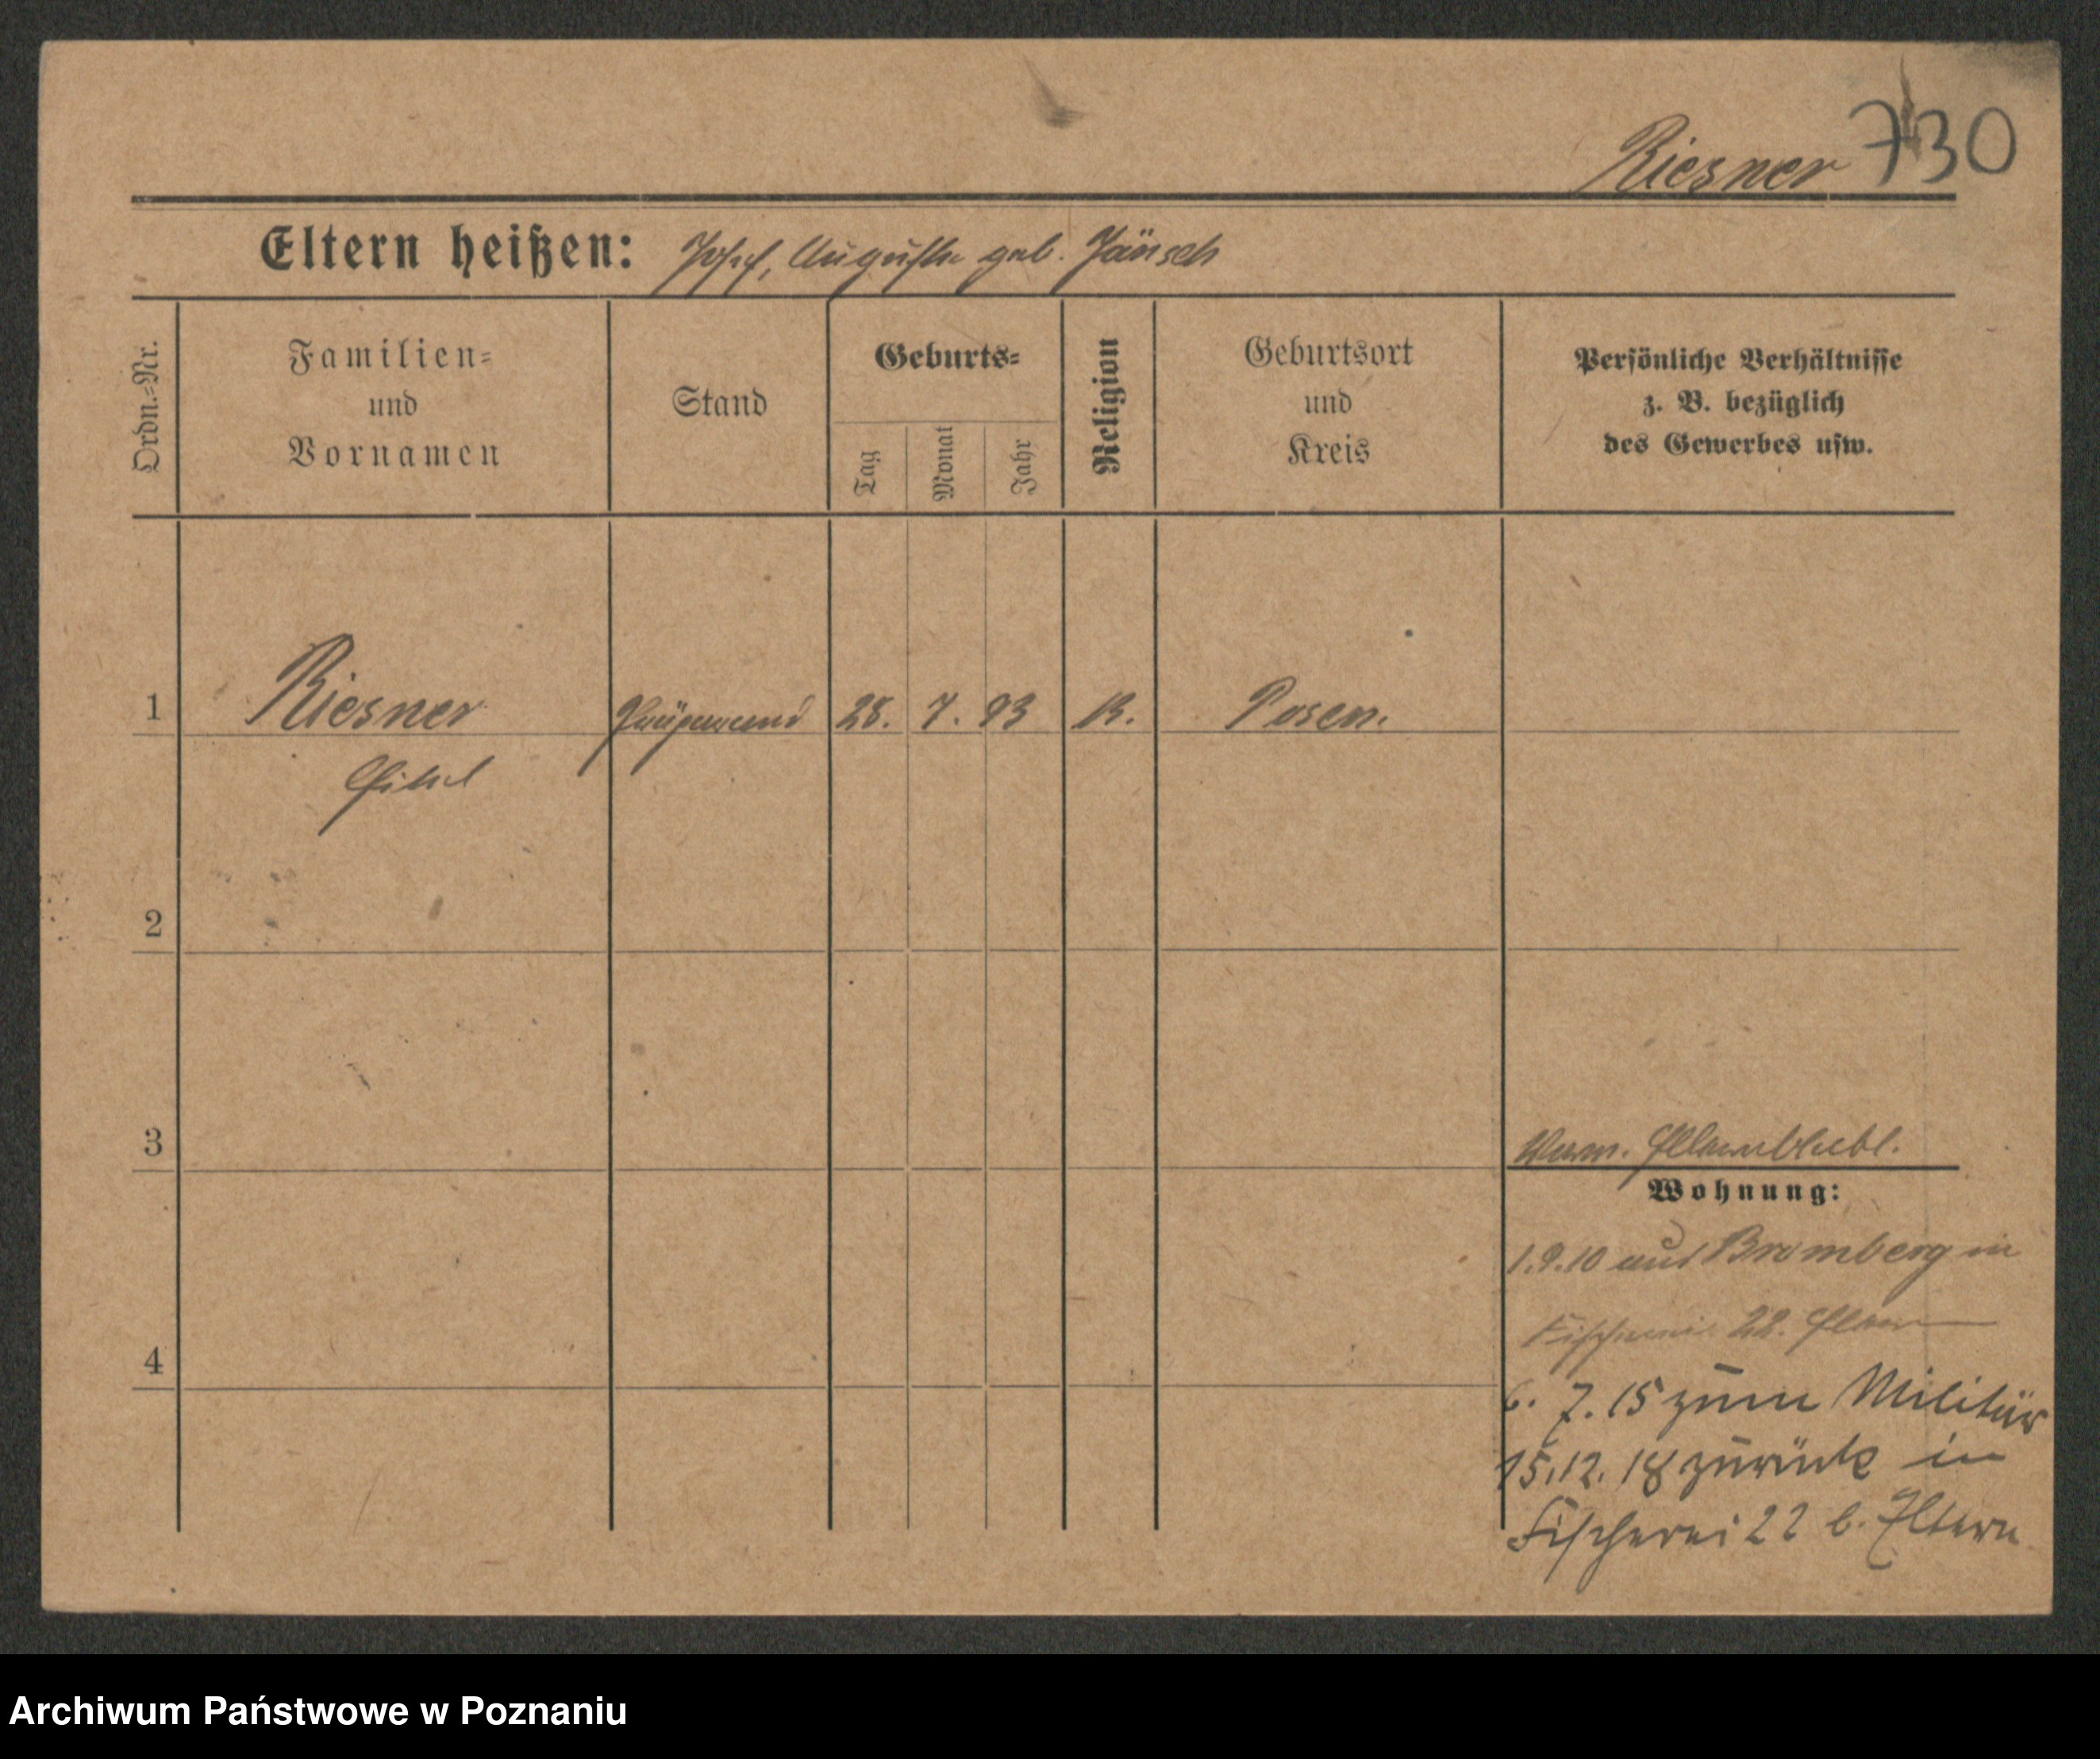 Riesner 730
Eltern heißen: Josef, Auguste geb. Jänsch
Ordn.=Nr.
Familien=
und
Vornamen
Stand
Geburts=
Tag
Monat
Jahr
Religion
Geburtsort
und
Kreis
Persönliche Verhältnisse
z. B. bezüglich
des Gewerbes usw.
1 Riesner 28. 7. 93 K. Posen.
2
3
Wohnung:
1.9.10 aus Bromberg in
Fischerei 22.
4
6. 7. 15 zum Militär
15.12. 18 zurück in
Fischerei 22 b. Eltern
Archiwum Państwowe w Poznaniu